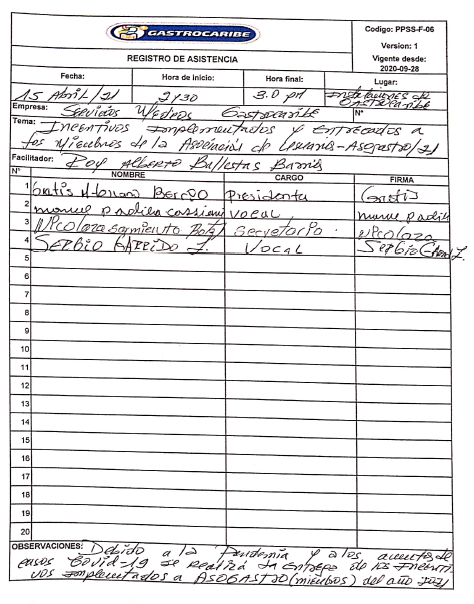 GASTROCARIBE
Codigo: PPSS-F-06
Version: 1
REGISTRO DE ASISTENCIA
Vigente desde:
2020-09-28
Fecha: Hora de inicio: Hora final: Lugar:
15 Abril/21 2:30 3:0 pm Instalaciones de
GASTROCARIBE
Empresa: Servicios Médicos Gastrocaribe N°
Tema: Incentivos implementados y Entregados a
los Miembros de la Asociación de Usuarios-Asogastro/21
Facilitador: Roy Alberto Ballestas Barrios
N° NOMBRE CARGO FIRMA
1 Presidenta
2 manuel padilla cassiani vocal manuel padilla
3 Nicolaza Sarmiento Secretario. Nicolaza
4 SERGIO GARRIDO J. Vocal Sergio
5
6
7
8
9
10
11
12
13
14
15
16
17
18
19
20
OBSERVACIONES: Debido a la Pandemia y a los aumentos de
casos Covid-19 se realizá la Entrega de los Incenti
vos implementados a ASOGASTRO (miembros) del año 2021